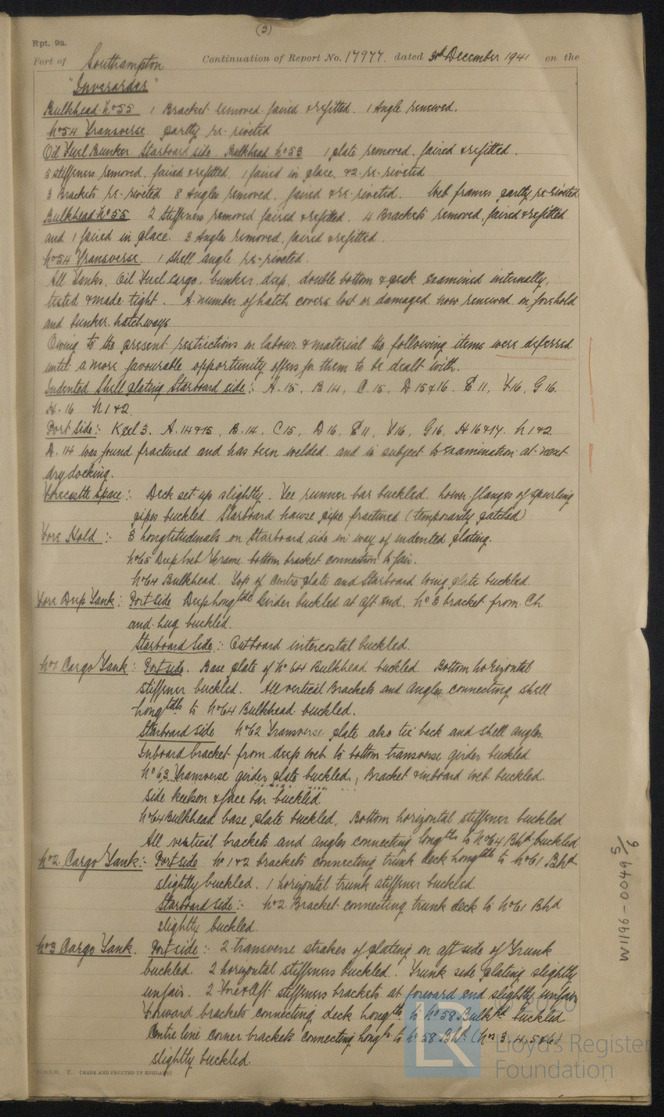 (3)
Rpt. 9a.
Port of Southampton Continuation of Report No. 17977. dated 3rd December 1941 on the
"Inverardar"
Bulkhead No 55 1 Bracket removed faired & refitted. 1 Angle renewed.
No 54 Transverse partly re-riveted
Oil Fuel Bunker Starboard side Bulkhead No 53 1 plate removed, faired & refitted.
3 stiffeners removed, faired & refitted, 1 faired in place, & 2 re-riveted
3 Brackets re-riveted 8 Angles removed, faired & re-riveted. Web frames partly re-riveted
Bulkhead No 55 2 Stiffeners removed faired & refitted. 4 Brackets removed, faired & refitted
and 1 faired in place. 3 Angles removed, faired & refitted.
No 54 Transverse. 1 shell angle re-riveted.
All Tanks, Oil Fuel cargo, bunker deep, double bottom & peak examined internally,
tested & made tight. A number of hatch covers lost or damaged now renewed in forehold
and bunker hatchways
Owing to the present restrictions in labour & material the following items were deferred
until a more favourable opportunity offers for them to be dealt with.
Indented Shell plating Starboard side: A.15, B 14, C 15, D 15 & 16 E 11, F 16, G 16.
H. 16 1 & 2.
Port Side:- Keel 3. A. 14 & 15, B. 14. C 15, D 16, E 11, F 16, G 16, H 16 & 17. 1 & 2
14 was found fractured and has been welded and is subject to examination at next
drydocking.
Forecastle Space: Deck set up slightly. Vee runner bar buckled. Lower flanges of spurling
pipes buckled Starboard hawse pipe fractured (temporarily patched)
Fore Hold:- 3 Longtitudinals on Starboard side in way of indented plating.
No 65 Deep Web Frame bottom bracket connection to fair.
No 64 Bulkhead. Top of Centre plate and Starboard wing plate buckled
Fore Deep Tank: Port side Deep long tdl Girder buckled at aft end. No 3 bracket from CL
and lug buckled.
Starboard Side: Outboard intercostal buckled.
No 1 Cargo Tank: Port side. Base plate of No 64 Bulkhead buckled Bottom horizontal
stiffener buckled. All vertical Brackets and Angles connecting shell
longtdls to No 64 Bulkhead buckled.
Starboard side No 62 Transverse plate also tie back and shell angles
Inboard bracket from deep web to bottom transverse girder buckled
No 63 Transverse girder plate buckled, Bracket & inboard web buckled.
Side keelson & face bar buckled.
No 64 Bulkhead base plate buckled, Bottom horizontal stiffener buckled
All vertical brackets and angles connecting longtls to No 64 Bhd buckled
No 2 Cargo Tank:- Port side No 1 & 2 brackets connecting trunk deck longtls to No 61 Bhd
slightly buckled. 1 horizontal trunk stiffener buckled
Starboard side:- No 2 Bracket connecting trunk deck to No 61 Bhd
slightly buckled.
No 3 Cargo Tank. Port side: 2 transverse strakes of plating on aft side of Trunk
buckled. 2 horizontal stiffeners buckled. Trunk side plating slightly
unfair. 2 Fore & Aft stiffeners brackets at forward end slightly unfair
Forward brackets connecting deck longtls to No 58 Bulkhd buckled
Centre line corner brackets connecting longtls to No 58 Bhd (Nos 3, 4, 5 & 6)
slightly buckled.
W1196-0049 5/6
© 2020
LR
Lloyd's Register
Foundation
(MADE AND PRINTED IN ENGLAND)